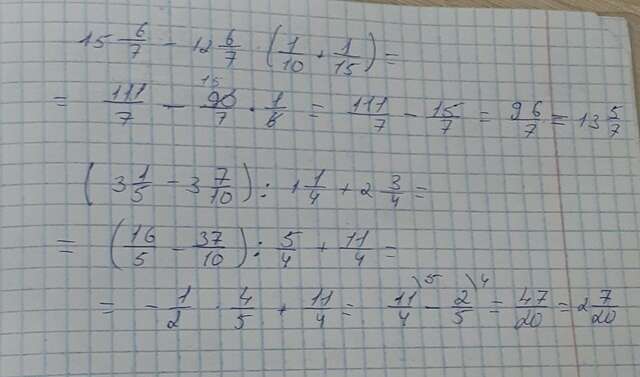 15 6/7 - 12 6/7 · (1/10 + 1/15) =
= 111/7 - 90/7 15 · 1/6 = 111/7 - 15/7 = 96/7 = 13 5/7
(3 1/5 - 3 7/10) : 1 1/4 + 2 3/4 =
= (16/5 - 37/10) : 5/4 + 11/4 =
= - 1/2 · 4/5 + 11/4 = 11/4 )5 - 2/5 )4 = 47/20 = 2 7/20